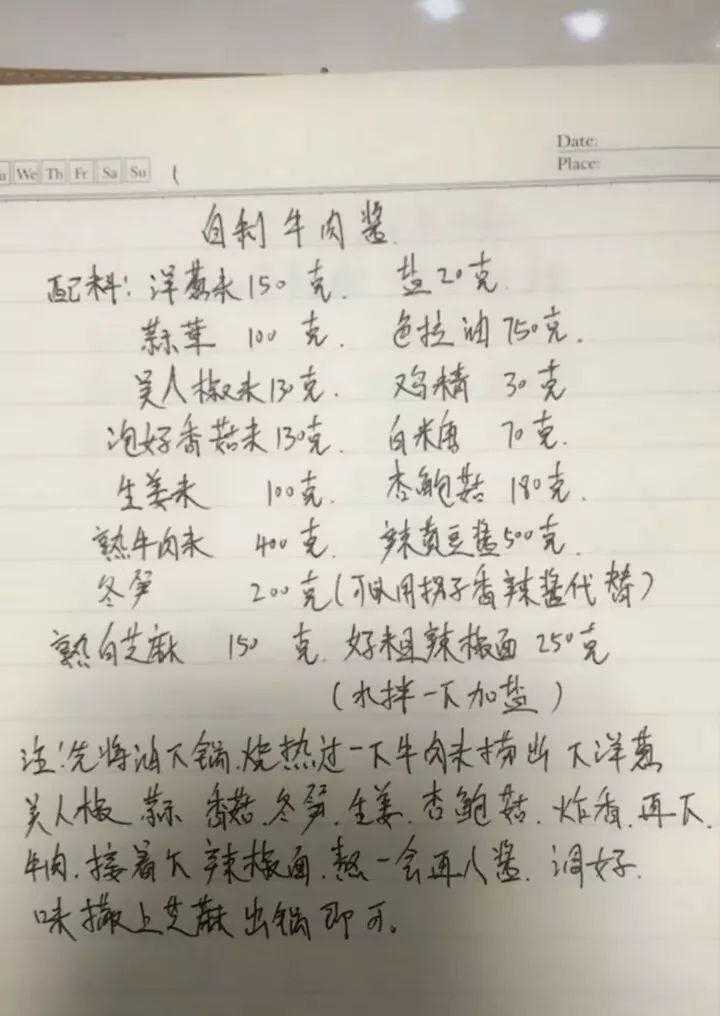 Date:
Place:
We Th Fr Sa Su
自制牛肉酱
配料：洋葱末150克. 盐20克.
蒜茸 100克. 色拉油750克.
美人椒末130克. 鸡精 30克
泡好香菇末130克. 白米唐 70克.
生姜末 100克. 杏鲍菇 180克.
熟牛肉末 400克. 辣黄豆酱500克.
冬笋 200克(可以用拐子香辣酱代替)
熟白芝麻 150克. 好粗辣椒面250克
(水拌一下加盐)
注：先将油下锅.烧热过一下牛肉末捞出 下洋葱
美人椒.蒜.香菇.冬笋.生姜.杏鲍菇.炸香.再下.
牛肉.接着下辣椒面.熬一会再入酱.调好.
味撒上芝麻出锅即可。